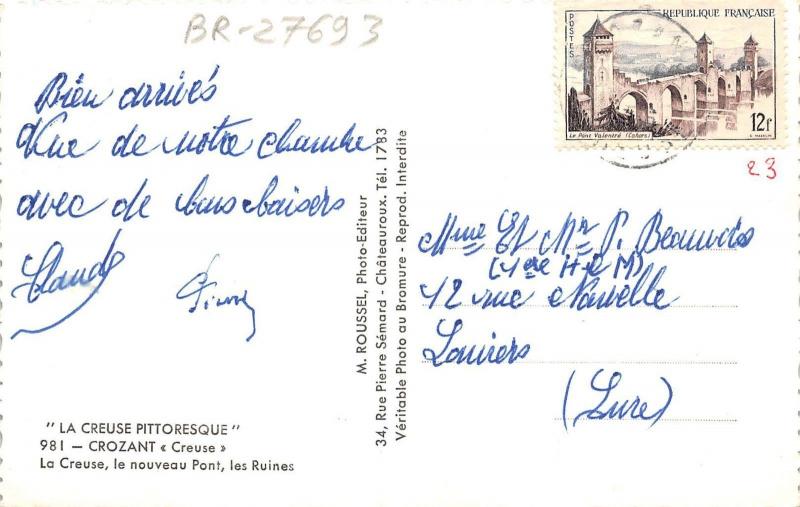 BR-27693
Bien arrivés
Vue de notre chambre
avec de bons baisers
Claude
Pierre
" LA CREUSE PITTORESQUE "
981 — CROZANT « Creuse »
La Creuse, le nouveau Pont, les Ruines
M. ROUSSEL, Photo-Editeur
34, Rue Pierre Sémard - Châteauroux. Tél. 1783
Véritable Photo au Bromure - Reprod. Interdite
REPUBLIQUE FRANÇAISE
POSTES
Le Pont Valentré (Cahors)
12f
23
Mme Et Mr P. Beauvais
(4ere H L M)
12 rue Nouvelle
Louviers
(Eure)